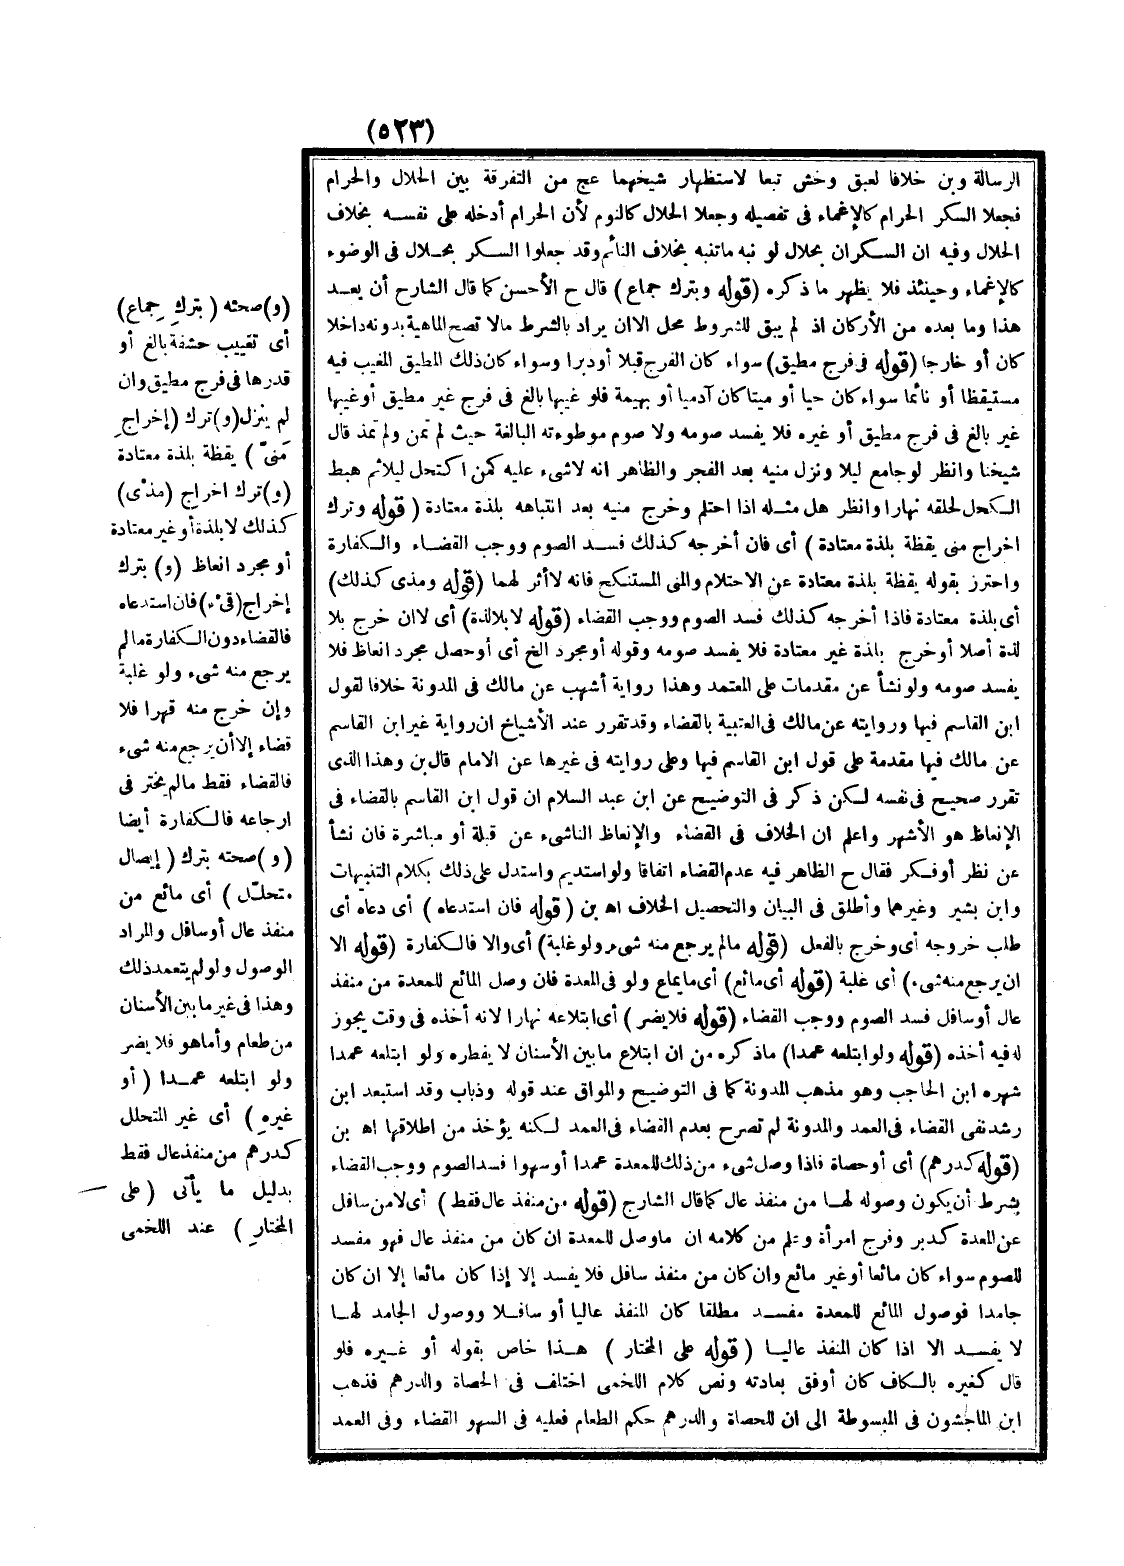 (٥٢٣)
الرسالة وبن خلافا لعبق وخش تبعا لاستظهار شيخهما عج من التفرقة بين الحلال والحرام
فجعلا السكر الحرام كالإغماء فى تفصيله وجعلا الحلال كالنوم لأن الحرام أدخله على نفسه بخلاف
الحلال وفيه ان السكران بحلال لو نبه ماتنبه بخلاف النائم وقد جعلوا السكر بحلال فى الوضوء
كالإغماء وحينئذ فلا يظهر ما ذكره (قوله وبترك جماع) قال ح الأحسن كما قال الشارح أن يعد
هذا وما بعده من الأركان اذ لم يبق للشروط محل الاان يراد بالشرط مالا تصح الماهية بدونه داخلا
كان أو خارجا (قوله فى فرج مطيق) سواء كان الفرج قبلا أودبرا وسواء كان ذلك المطيق المغيب فيه
مستيقظا أو نائما سواء كان حيا أو ميتا كان آدميا أو بهيمة فلو غيبها بالغ فى فرج غير مطيق أوغيبها
غير بالغ فى فرج مطيق أو غيره فلا يفسد صومه ولا صوم موطوءته البالغة حيث لم تمن ولم تمذ قال
شيخنا وانظر لو جامع ليلا ونزل منيه بعد الفجر والظاهر انه لاشىء عليه كمن اكتحل ليلا ثم هبط
الكحل لحلقه نهارا وانظر هل مثله اذا احتلم وخرج منيه بعد انتباهه بلذة معتادة (قوله وترك
اخراج منى يقظة بلذة معتادة) أى فان أخرجه كذلك فسد الصوم ووجب القضاء والكفارة
واحترز بقوله يقظة بلذة معتادة عن الاحتلام والمنى المستنكح فانه لاأثر لهما (قوله ومذى كذلك)
أى بلذة معتادة فاذا أخرجه كذلك فسد الصوم ووجب القضاء (قوله لا بلالذة) أى لاان خرج بلا
لذة أصلا أوخرج بلذة غير معتادة فلا يفسد صومه وقوله أومجرد الخ أى أوحصل مجرد انعاظ فلا
يفسد صومه ولو نشأ عن مقدمات على المعتمد وهذا رواية أشهب عن مالك فى المدونة خلافا لقول
ابن القاسم فيها وروايته عن مالك فى العتبية بالقضاء وقد تقرر عند الأشياخ ان رواية غير ابن القاسم
عن مالك فيها مقدمة على قول ابن القاسم فيها وعلى روايته فى غيرها عن الامام قال بن وهذا الذى
تقرر صحيح فى نفسه لكن ذكر فى التوضيح عن ابن عبد السلام ان قول ابن القاسم بالقضاء فى
الإنعاظ هو الأشهر واعلم ان الخلاف فى القضاء والإنعاظ الناشىء عن قبلة أو مباشرة فان نشأ
عن نظر أوفكر فقال ح الظاهر فيه عدم القضاء اتفاقا ولو استديم واستدل على ذلك بكلام التنبيهات
وابن بشير وغيرهما وأطلق فى البيان والتحصيل الخلاف اه بن (قوله فان استدعاه) أى دعاه أى
طلب خروجه أى وخرج بالفعل (قوله مالم يرجع منه شىء ولو غلبة) أى والا فالكفارة (قوله الا
ان يرجع منه شىء) أى غلبة (قوله أى مائع) أى ما يماع ولو فى المعدة فان وصل المائع للمعدة من منفذ
عال أوسافل فسد الصوم ووجب القضاء (قوله فلا يضر) أى ابتلاعه نهارا لانه أخذه فى وقت يجوز
له فيه أخذه (قوله ولو ابتلعه عمدا) ماذكره من ان ابتلاع مابين الأسنان لا يفطره ولو ابتلعه عمدا
شهره ابن الحاجب وهو مذهب المدونة كما فى التوضيح والمواق عند قوله وذباب وقد استبعد ابن
رشد نفى القضاء فى العمد والمدونة لم تصرح بعدم القضاء فى العمد لكنه يؤخذ من اطلاقها اه بن
(قوله كدرهم) أى أوحصاة فاذا وصل شىء من ذلك للمعدة عمدا أوسهوا فسد الصوم ووجب القضاء
بشرط أن يكون وصوله لها من منفذ عال كما قال الشارح (قوله من منفذ عال فقط) أى لا من سافل
عن المعدة كدبر وفرج امرأة وعلم من كلامه ان ماوصل للمعدة ان كان من منفذ عال فهو مفسد
للصوم سواء كان مائعا أوغير مائع وان كان من منفذ سافل فلا يفسد إلا إذا كان مائعا إلا ان كان
جامدا فوصول المائع للمعدة مفسد مطلقا كان المنفذ عاليا أو سافلا ووصول الجامد لها
لا يفسد الا اذا كان المنفذ عاليا (قوله على المختار) هذا خاص بقوله أو غيره فلو
قال كغيره بالكاف كان أوفق بعادته ونص كلام اللخمى اختلف فى الحصاة والدرهم فذهب
ابن الماجشون فى المبسوطة الى ان للحصاة والدرهم حكم الطعام فعليه فى السهو القضاء وفى العمد
(و)صحته (بتركِ جماع)
أى تغييب حشفة بالغ أو
قدرها فى فرج مطيق وان
لم ينزل(و)ترك (إخراجِ
مَنىّ) يقظة بلذة معتادة
(و)ترك اخراج (مذْى)
كذلك لا بلذة أو غير معتادة
أو مجرد انعاظ (و) بترك
إخراج(قىْء)فان استدعاه
فالقضاء دون الكفارة مالم
يرجع منه شىء ولو غلبة
وإن خرج منه قهرا فلا
قضاء إلا أن يرجع منه شىء
فالقضاء فقط مالم يختر فى
ارجاعه فالكفارة أيضا
(و)صحته بترك (إيصال
متحلّل) أى مائع من
منفذ عال أو سافل والمراد
الوصول ولو لم يتعمد ذلك
وهذا فى غير ما بين الأسنان
من طعام وأما هو فلا يضر
ولو ابتلعه عمدا (أو
غيرهِ) أى غير المتحلل
كدرهم من منفذ عال فقط
بدليل ما يأتى (على
المختارِ) عند اللخمى